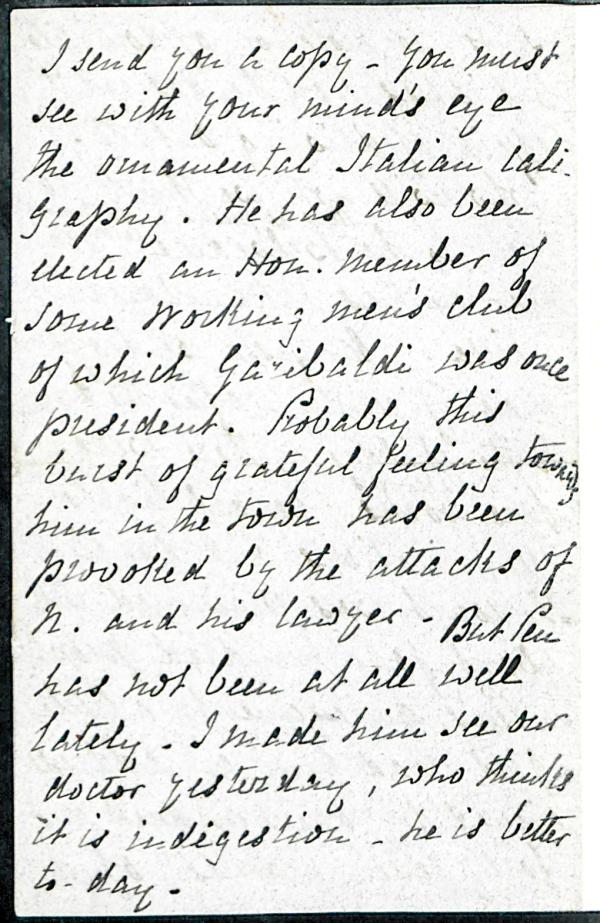 I send you a copy - You must
see with your mind's eye
the ornamental Italian cali-
graphy. He has also been
elected an Hon. member of
some Working men's club
of which Garibaldi was once
president. Probably this
burst of grateful feeling towards
him in the town has been
provoked by the attacks of
N. and his lawyer - But Pen
has not been at all well
lately - I made him see our
doctor yesterday, who thinks
it is indigestion - he is better
to-day -